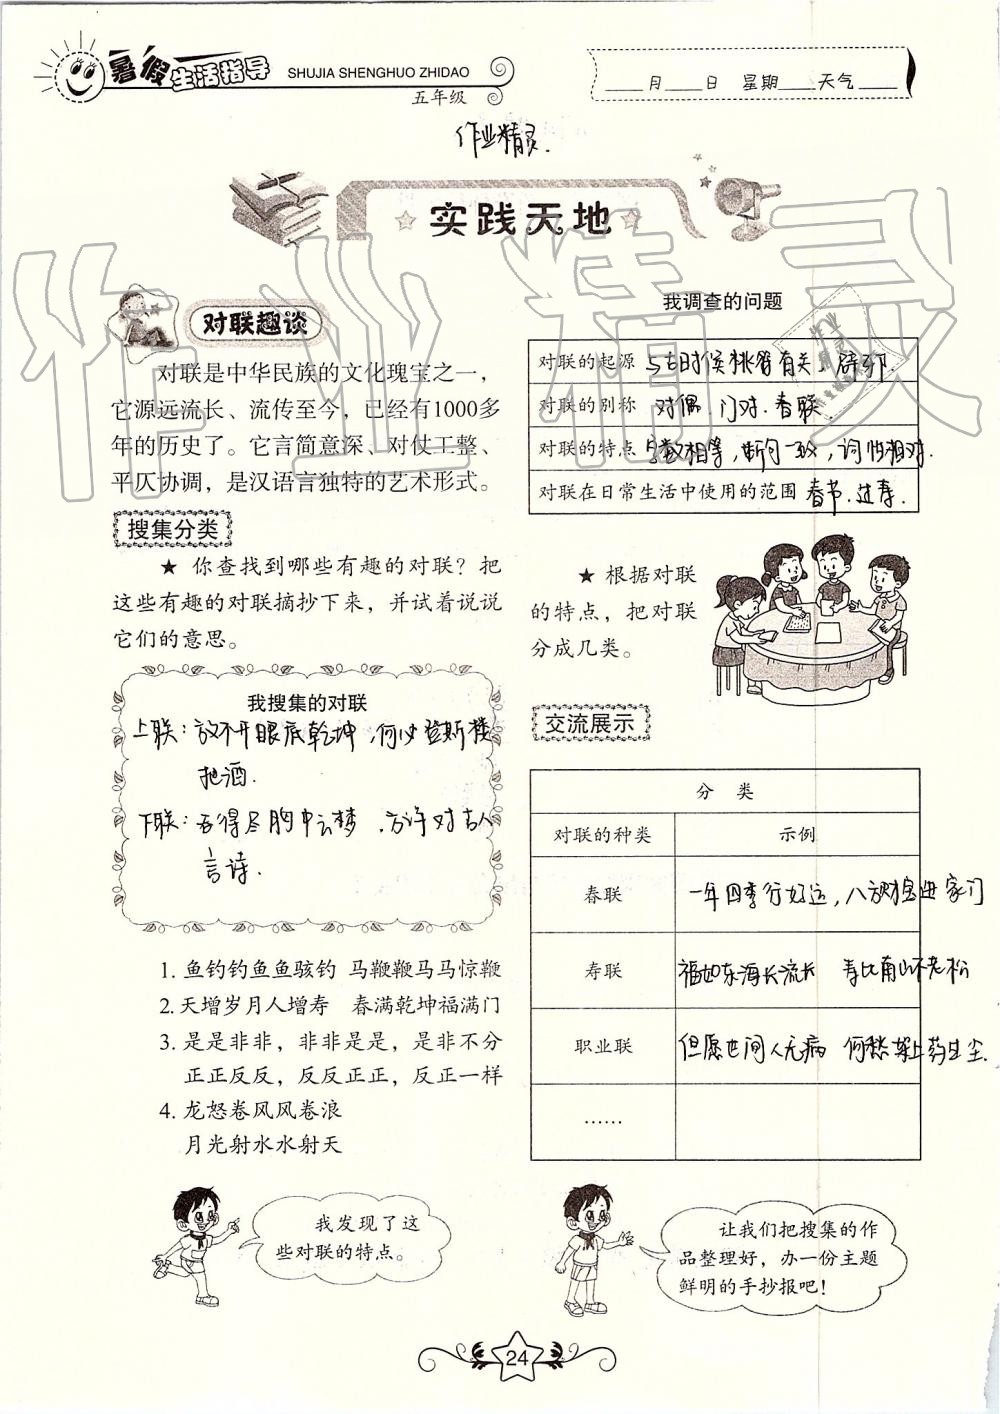 暑假生活指导
SHUJIA SHENGHUO ZHIDAO
五年级
____月____日 星期____天气____
作业精灵.
实践天地
作业精灵
对联趣谈
对联是中华民族的文化瑰宝之一，
它源远流长、流传至今，已经有1000多
年的历史了。它言简意深、对仗工整、
平仄协调，是汉语言独特的艺术形式。
搜集分类
★ 你查找到哪些有趣的对联？把
这些有趣的对联摘抄下来，并试着说说
它们的意思。
我搜集的对联
上联：放不开眼底乾坤，何必登斯楼
把酒.
下联：吞得尽胸中云梦，方许对古人
言诗.
1. 鱼钓钓鱼鱼骇钓 马鞭鞭马马惊鞭
2. 天增岁月人增寿 春满乾坤福满门
3. 是是非非，非非是是，是非不分
正正反反，反反正正，反正一样
4. 龙怒卷风风卷浪
月光射水水射天
我发现了这
些对联的特点。
我调查的问题
对联的起源 与古时候桃符有关，辟邪.
对联的别称 对偶.门对.春联.
对联的特点 字数相等，断句一致，词性相对.
对联在日常生活中使用的范围 春节.过寿.
★ 根据对联
的特点，把对联
分成几类。
交流展示
分 类
对联的种类 示例
春联 一年四季行好运，八方财宝进家门
寿联 福如东海长流水 寿比南山不老松
职业联 但愿世间人无病 何愁架上药生尘.
……
让我们把搜集的作
品整理好，办一份主题
鲜明的手抄报吧！
24